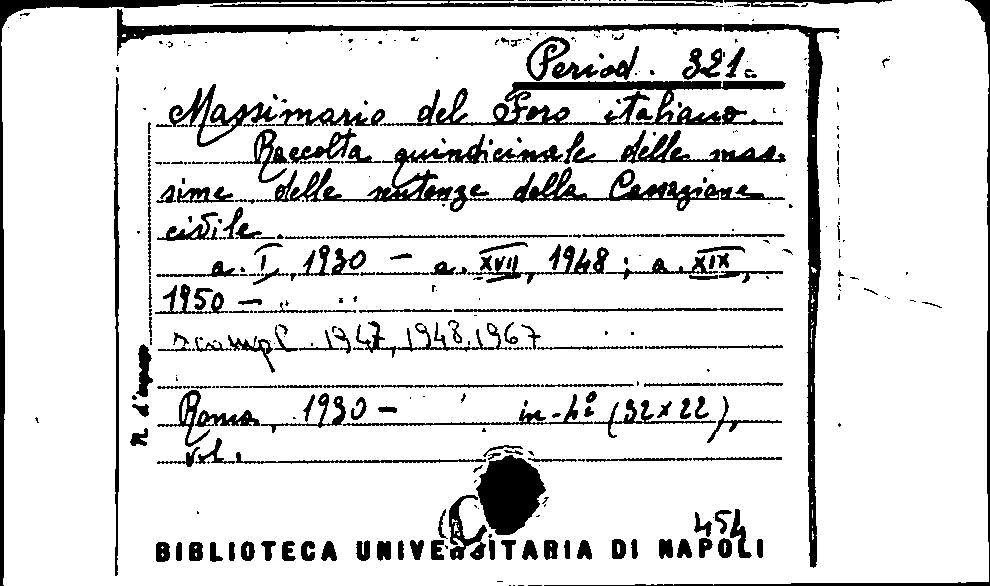 Period. 321.
Massimario del Foro italiano.
Raccolta quindicinale delle mas-
sime delle sentenze della Cassazione
civile.
a. I, 1930 — a. XVII, 1948; a. XIX,
1950 —
scompl. 1947, 1948, 1967
Roma, 1930 — in-4º (32x22),
vol.
N. d'ingresso
454
BIBLIOTECA UNIVERSITARIA DI NAPOLI